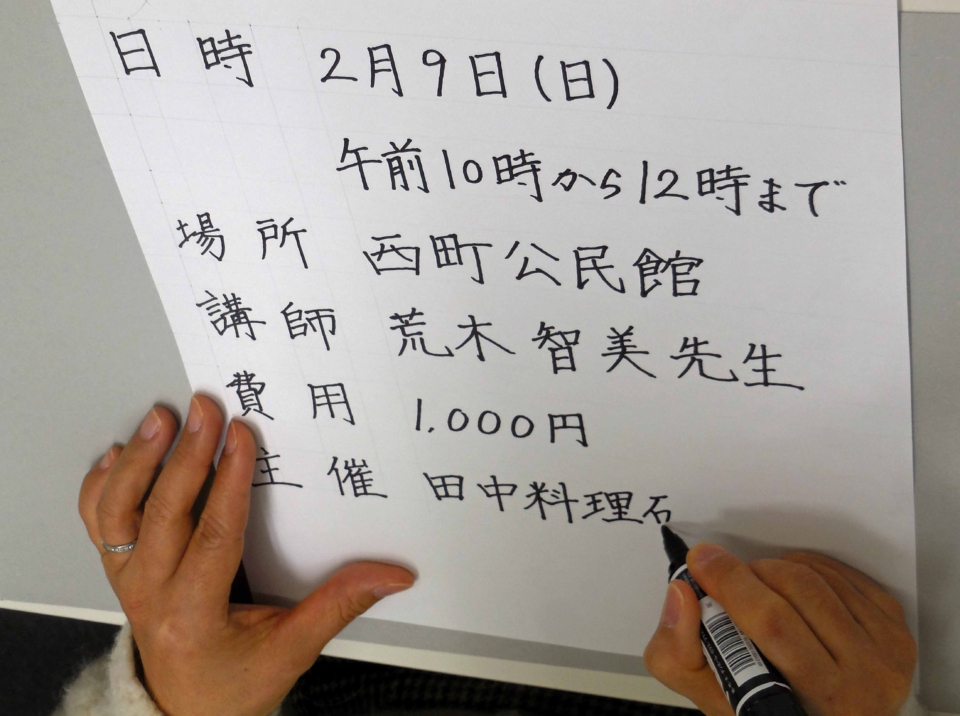 日時 2月9日(日)
午前10時から12時まで
場所 西町公民館
講師 荒木智美先生
費用 1,000円
主催 田中料理